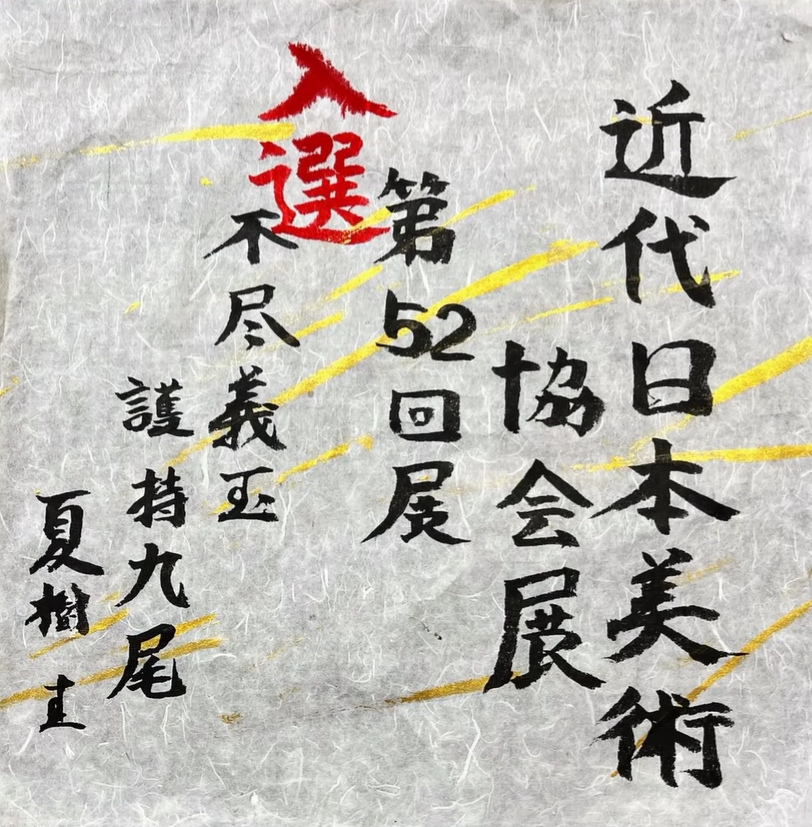 近代日本美術
協会展
第52回展
入選
不尽義玉
護持九尾
夏樹